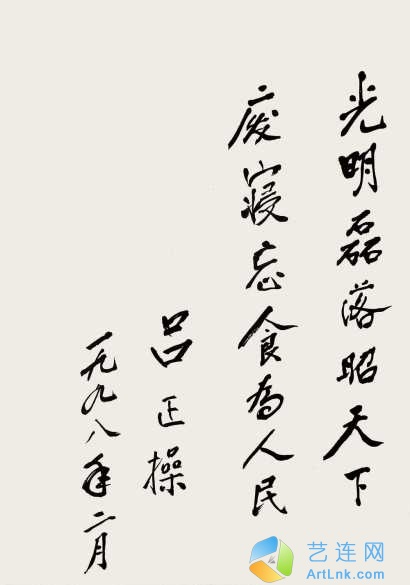 光明磊落昭天下
废寝忘食为人民
吕正操
一九九八年二月
艺连网
ArtLnk.com